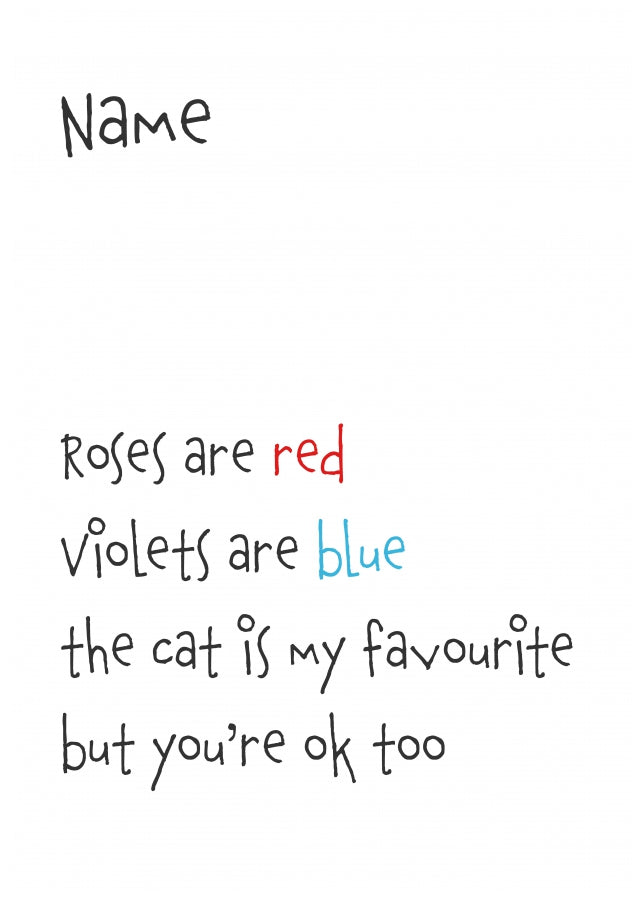 Name
Roses are red
violets are blue
the cat is my favourite
but you're ok too